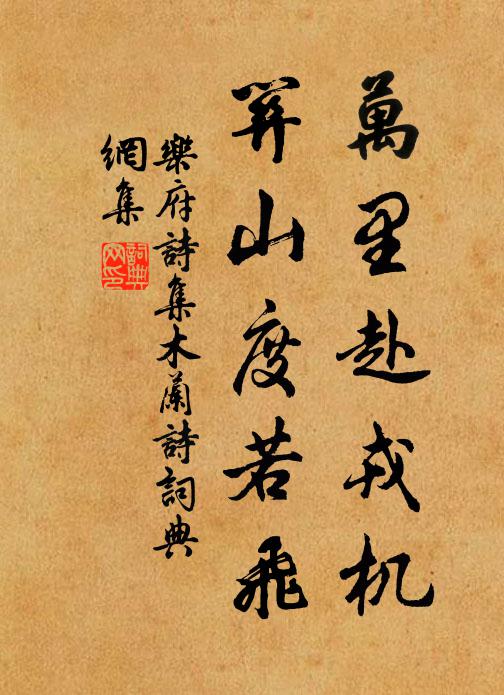 萬里赴戎机
関山度若飛
樂府詩集木蘭詩詞典
網集
詞典
网印